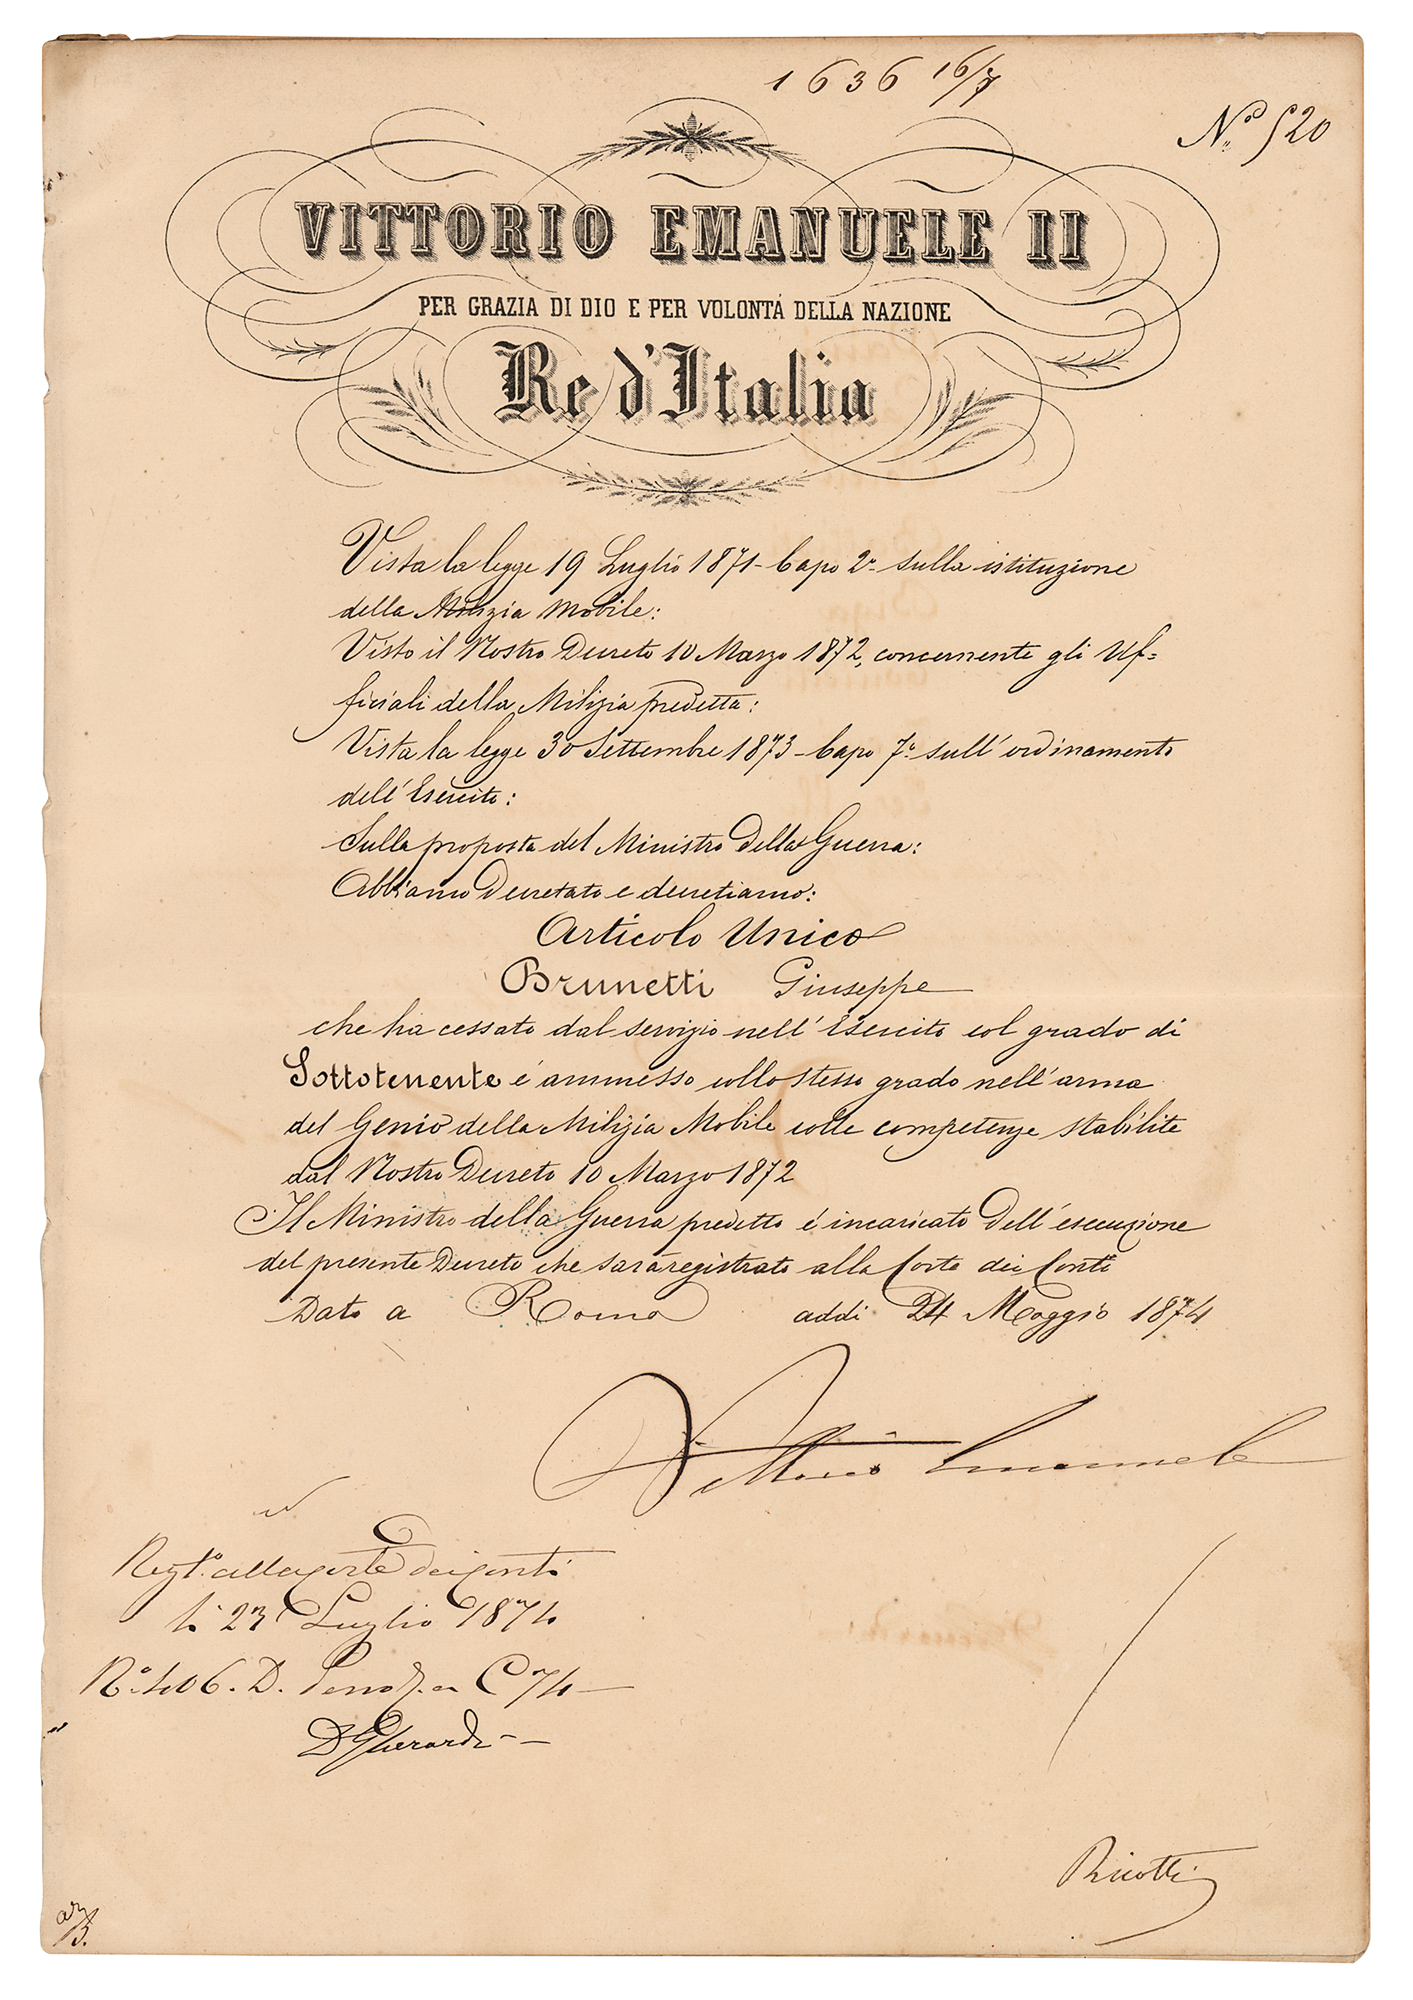 1636 16/7
N.º 520
VITTORIO EMANUELE II
PER GRAZIA DI DIO E PER VOLONTÁ DELLA NAZIONE
Re d'Italia
Vista la legge 19 Luglio 1871 - Capo 2º sulla istituzione
della Milizia Mobile:
Visto il Nostro Decreto 10 Marzo 1872, concernente gli Uf=
ficiali della Milizia predetta:
Vista la legge 30 Settembre 1873 - Capo 7º sull'ordinamento
dell'Esercito:
Sulla proposta del Ministro della Guerra:
Abbiamo Decretato e decretiamo:
Articolo Unico
Brunetti Giuseppe
che ha cessato dal servizio nell'Esercito col grado di
Sottotenente é ammesso collo stesso grado nell'arma
del Genio della Milizia Mobile colle competenze stabilite
dal Nostro Decreto 10 Marzo 1872
Il Ministro della Guerra predetto é incaricato dell'esecuzione
del presente Decreto che sará registrato alla Corte dei Conti
Dato a Roma addi 24 Maggio 1874
Vittorio Emanuele
Regt.º alla Corte dei Conti
li 23 Luglio 1874
Nº 406. D. C 74
D Gherardi
Ricotti